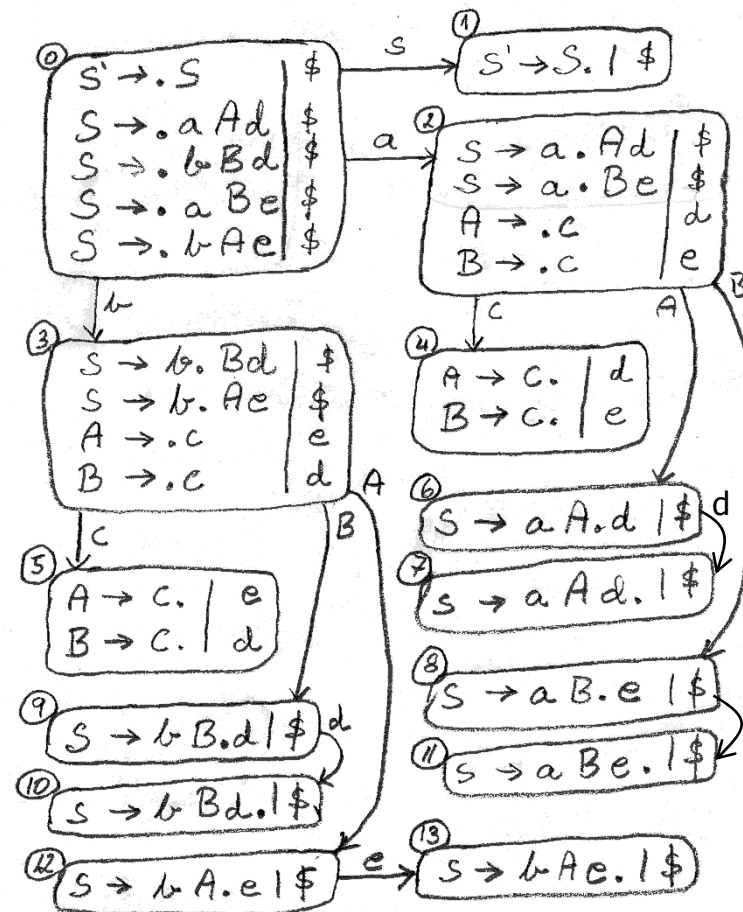 0
S' → .S | $
S → .aAd | $
S → .bBd | $
S → .aBe | $
S → .bAe | $
S
1
S' → S. | $
a
2
S → a.Ad | $
S → a.Be | $
A → .c | d
B → .c | e
b
3
S → b.Bd | $
S → b.Ae | $
A → .c | e
B → .c | d
c
A
B
4
A → c. | d
B → c. | e
c
A
B
5
A → c. | e
B → c. | d
6
S → aA.d | $
d
7
S → aAd. | $
8
S → aB.e | $
9
S → bB.d | $
d
10
S → bBd. | $
11
S → aBe. | $
12
S → bA.e | $
e
13
S → bAe. | $